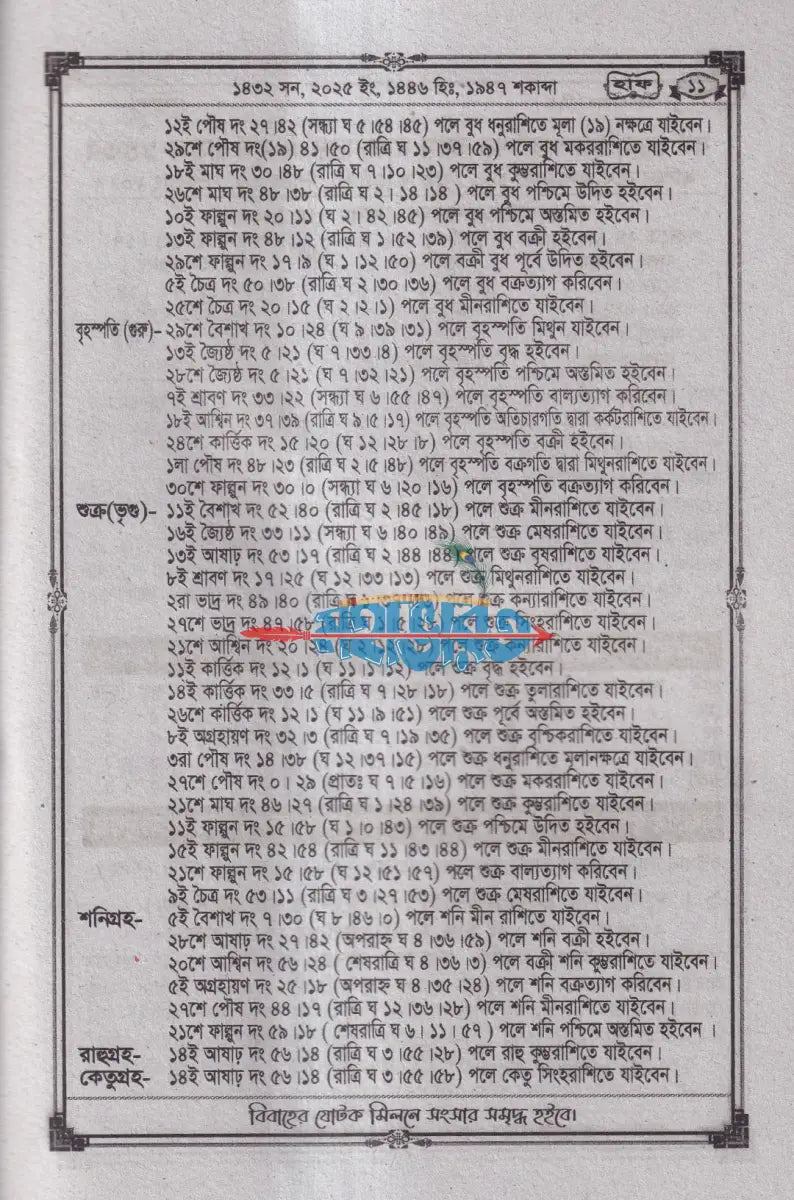 ১৪৩২ সন, ২০২৫ ইং, ১৪৪৬ হিঃ, ১৯৪৭ শকাব্দা হাফ ১১
১২ই পৌষ দং ২৭।৪২ (সন্ধ্যা ঘ ৫।৫৪।৪৫) পলে বুধ ধনুরাশিতে মূলা (১৯) নক্ষত্রে যাইবেন।
২৯শে পৌষ দং(১৯) ৪১।৫০ (রাত্রি ঘ ১১।৩৭।৫৯) পলে বুধ মকররাশিতে যাইবেন।
১৮ই মাঘ দং ৩০।৪৮ (রাত্রি ঘ ৭।১০।২৩) পলে বুধ কুম্ভরাশিতে যাইবেন।
২৬শে মাঘ দং ৪৮।৩৮ (রাত্রি ঘ ২। ১৪।১৪ ) পলে বুধ পশ্চিমে উদিত হইবেন।
১০ই ফাল্গুন দং ২০।১১ (ঘ ২। ৪২।৪৫) পলে বুধ পশ্চিমে অস্তমিত হইবেন।
১৩ই ফাল্গুন দং ৪৮।১২ (রাত্রি ঘ ১।৫২।৩৯) পলে বুধ বক্রী হইবেন।
২৯শে ফাল্গুন দং ১৭।৯ (ঘ ১।১২।৫০) পলে বক্রী বুধ পূর্বে উদিত হইবেন।
৫ই চৈত্র দং ৫০।৩৮ (রাত্রি ঘ ২।৩০।৩৬) পলে বুধ বক্রত্যাগ করিবেন।
২৫শে চৈত্র দং ২০।১৫ (ঘ ২।২।১) পলে বুধ মীনরাশিতে যাইবেন।
বৃহস্পতি (গুরু)- ২৯শে বৈশাখ দং ১০।২৪ (ঘ ৯।৩৯।৩১) পলে বৃহস্পতি মিথুন যাইবেন।
১৩ই জ্যৈষ্ঠ দং ৫।২১ (ঘ ৭।৩৩।৪) পলে বৃহস্পতি বৃদ্ধ হইবেন।
২৮শে জ্যৈষ্ঠ দং ৫।২১ (ঘ ৭।৩২।২১) পলে বৃহস্পতি পশ্চিমে অস্তমিত হইবেন।
৭ই শ্রাবণ দং ৩৩।২২ (সন্ধ্যা ঘ ৬।৫৫।৪৭) পলে বৃহস্পতি বাল্যত্যাগ করিবেন।
১৮ই আশ্বিন দং ৩৭।৩৯ (রাত্রি ঘ ৯।৫।১৭) পলে বৃহস্পতি অতিচারগতি দ্বারা কর্কটরাশিতে যাইবেন।
২৪শে কার্ত্তিক দং ১৫।২০ (ঘ ১২।২৮।৮) পলে বৃহস্পতি বক্রী হইবেন।
১লা পৌষ দং ৪৮।২৩ (রাত্রি ঘ ২।৫।৪৮) পলে বৃহস্পতি বক্রগতি দ্বারা মিথুনরাশিতে যাইবেন।
৩০শে ফাল্গুন দং ৩০।০ (সন্ধ্যা ঘ ৬।২০।১৬) পলে বৃহস্পতি বক্রত্যাগ করিবেন।
শুক্র(ভৃগু)- ১১ই বৈশাখ দং ৫২।৪০ (রাত্রি ঘ ২।৪৫।১৮) পলে শুক্র মীনরাশিতে যাইবেন।
১৬ই জ্যৈষ্ঠ দং ৩৩।১১ (সন্ধ্যা ঘ ৬।৪০।৪৯) পলে শুক্র মেষরাশিতে যাইবেন।
১৩ই আষাঢ় দং ৫৩।১৭ (রাত্রি ঘ ২।৪৪।৪৪) পলে শুক্র বৃষরাশিতে যাইবেন।
৮ই শ্রাবণ দং ১৭।২৫ (ঘ ১২।৩৩।১৩) পলে শুক্র মিথুনরাশিতে যাইবেন।
২রা ভাদ্র দং ৪৯।৪০ (রাত্রি ঘ শুক্র কন্যারাশিতে যাইবেন।
২৭শে ভাদ্র দং ৪৭।৫৮ (রাত্রি ঘ ১।৫।২৮) পলে শুক্র সিংহরাশিতে যাইবেন।
২১শে আশ্বিন দং ২০।২৪ (ঘ কন্যারাশিতে যাইবেন।
১১ই কার্ত্তিক দং ১২।১ (ঘ ১১।১।১২) পলে শুক্র বৃদ্ধ হইবেন।
১৪ই কার্ত্তিক দং ৩৩।৫ (রাত্রি ঘ ৭।২৮।১৮) পলে শুক্র তুলারাশিতে যাইবেন।
২৬শে কার্ত্তিক দং ১২।১ (ঘ ১১।৯।৫১) পলে শুক্র পূর্বে অস্তমিত হইবেন।
৮ই অগ্রহায়ণ দং ৩২।৩ (রাত্রি ঘ ৭।১৯।৩৫) পলে শুক্র বৃশ্চিকরাশিতে যাইবেন।
৩রা পৌষ দং ১৪।৩৮ (ঘ ১২।৩৭।১৫) পলে শুক্র ধনুরাশিতে মূলানক্ষত্রে যাইবেন।
২৭শে পৌষ দং ০। ২৯ (প্রাতঃ ঘ ৭।৫।১৬) পলে শুক্র মকররাশিতে যাইবেন।
২১শে মাঘ দং ৪৬।২৭ (রাত্রি ঘ ১।২৪।৩৯) পলে শুক্র কুম্ভরাশিতে যাইবেন।
১১ই ফাল্গুন দং ১৫।৫৮ (ঘ ১।০।৪৩) পলে শুক্র পশ্চিমে উদিত হইবেন।
১৫ই ফাল্গুন দং ৪২।৫৪ (রাত্রি ঘ ১১।৪৩।৪৪) পলে শুক্র মীনরাশিতে যাইবেন।
২১শে ফাল্গুন দং ১৫।৫৮ (ঘ ১২।৫১।৫৭) পলে শুক্র বাল্যত্যাগ করিবেন।
৯ই চৈত্র দং ৫৩।১১ (রাত্রি ঘ ৩।২৭।৫৩) পলে শুক্র মেষরাশিতে যাইবেন।
শনিগ্রহ- ৫ই বৈশাখ দং ৭।৩০ (ঘ ৮।৪৬।০) পলে শনি মীন রাশিতে যাইবেন।
২৮শে আষাঢ় দং ২৭।৪২ (অপরাহ্ন ঘ ৪।৩৬।৫৯) পলে শনি বক্রী হইবেন।
২০শে আশ্বিন দং ৫৬।২৪ ( শেষরাত্রি ঘ ৪।৩৬।৩) পলে বক্রী শনি কুম্ভরাশিতে যাইবেন।
৫ই অগ্রহায়ণ দং ২৫।১৮ (অপরাহ্ন ঘ ৪।৩৫।২৪) পলে শনি বক্রত্যাগ করিবেন।
২৭শে পৌষ দং ৪৪।১৭ (রাত্রি ঘ ১২।৩৬।২৮) পলে শনি মীনরাশিতে যাইবেন।
২১শে ফাল্গুন দং ৫৯।১৮ ( শেষরাত্রি ঘ ৬। ১১। ৫৭ ) পলে শনি পশ্চিমে অস্তমিত হইবেন ।
রাহুগ্রহ- ১৪ই আষাঢ় দং ৫৬।১৪ (রাত্রি ঘ ৩।৫৫।২৮) পলে রাহু কুম্ভরাশিতে যাইবেন।
কেতুগ্রহ- ১৪ই আষাঢ় দং ৫৬।১৪ (রাত্রি ঘ ৩।৫৫।৫৮) পলে কেতু সিংহরাশিতে যাইবেন।
বিবাহের যোটক মিলনে সংসার সমৃদ্ধ হইবে।